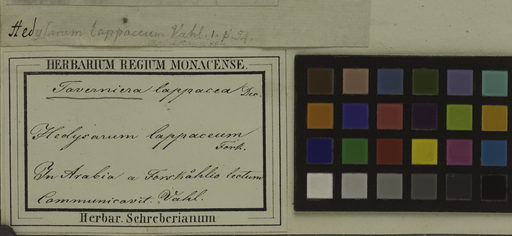 Hedysarum lappaceum Vahl. 1. p.
HERBARIUM REGIUM MONACENSE.
Taverniera lappacea Dec.
Hedysarum lappaceum
Forsk.
In Arabia a Forskåhlio lectum
Communicavit. Vahl.
Herbar. Schreberianum